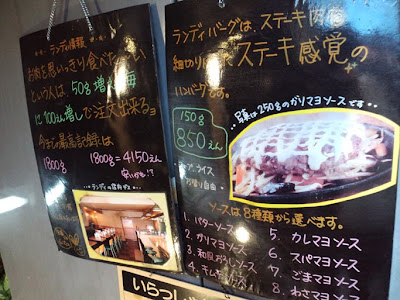 ランディの情報
お肉を思いっきり食べたーい
という人は、50g増し毎
に100えん増しで注文出来るョ
今までの最高記録は
1800g 1800g=4150えん
安いかも!?
ランディの店内
ランディバーグは、ステーキ肉
細切りに
ステーキ感覚の
ハンバーグです。
150g
850えん
ライス
自由
写真は250gのガリマヨソースです
ソースは8種類から選べます。
1. バターソース
2. ガリマヨソース
3. 和風おろしソース
4. キム
5. カレマヨソース
6. スパマヨソース
7. ごまマヨソース
8. わさマヨソース
いらっし